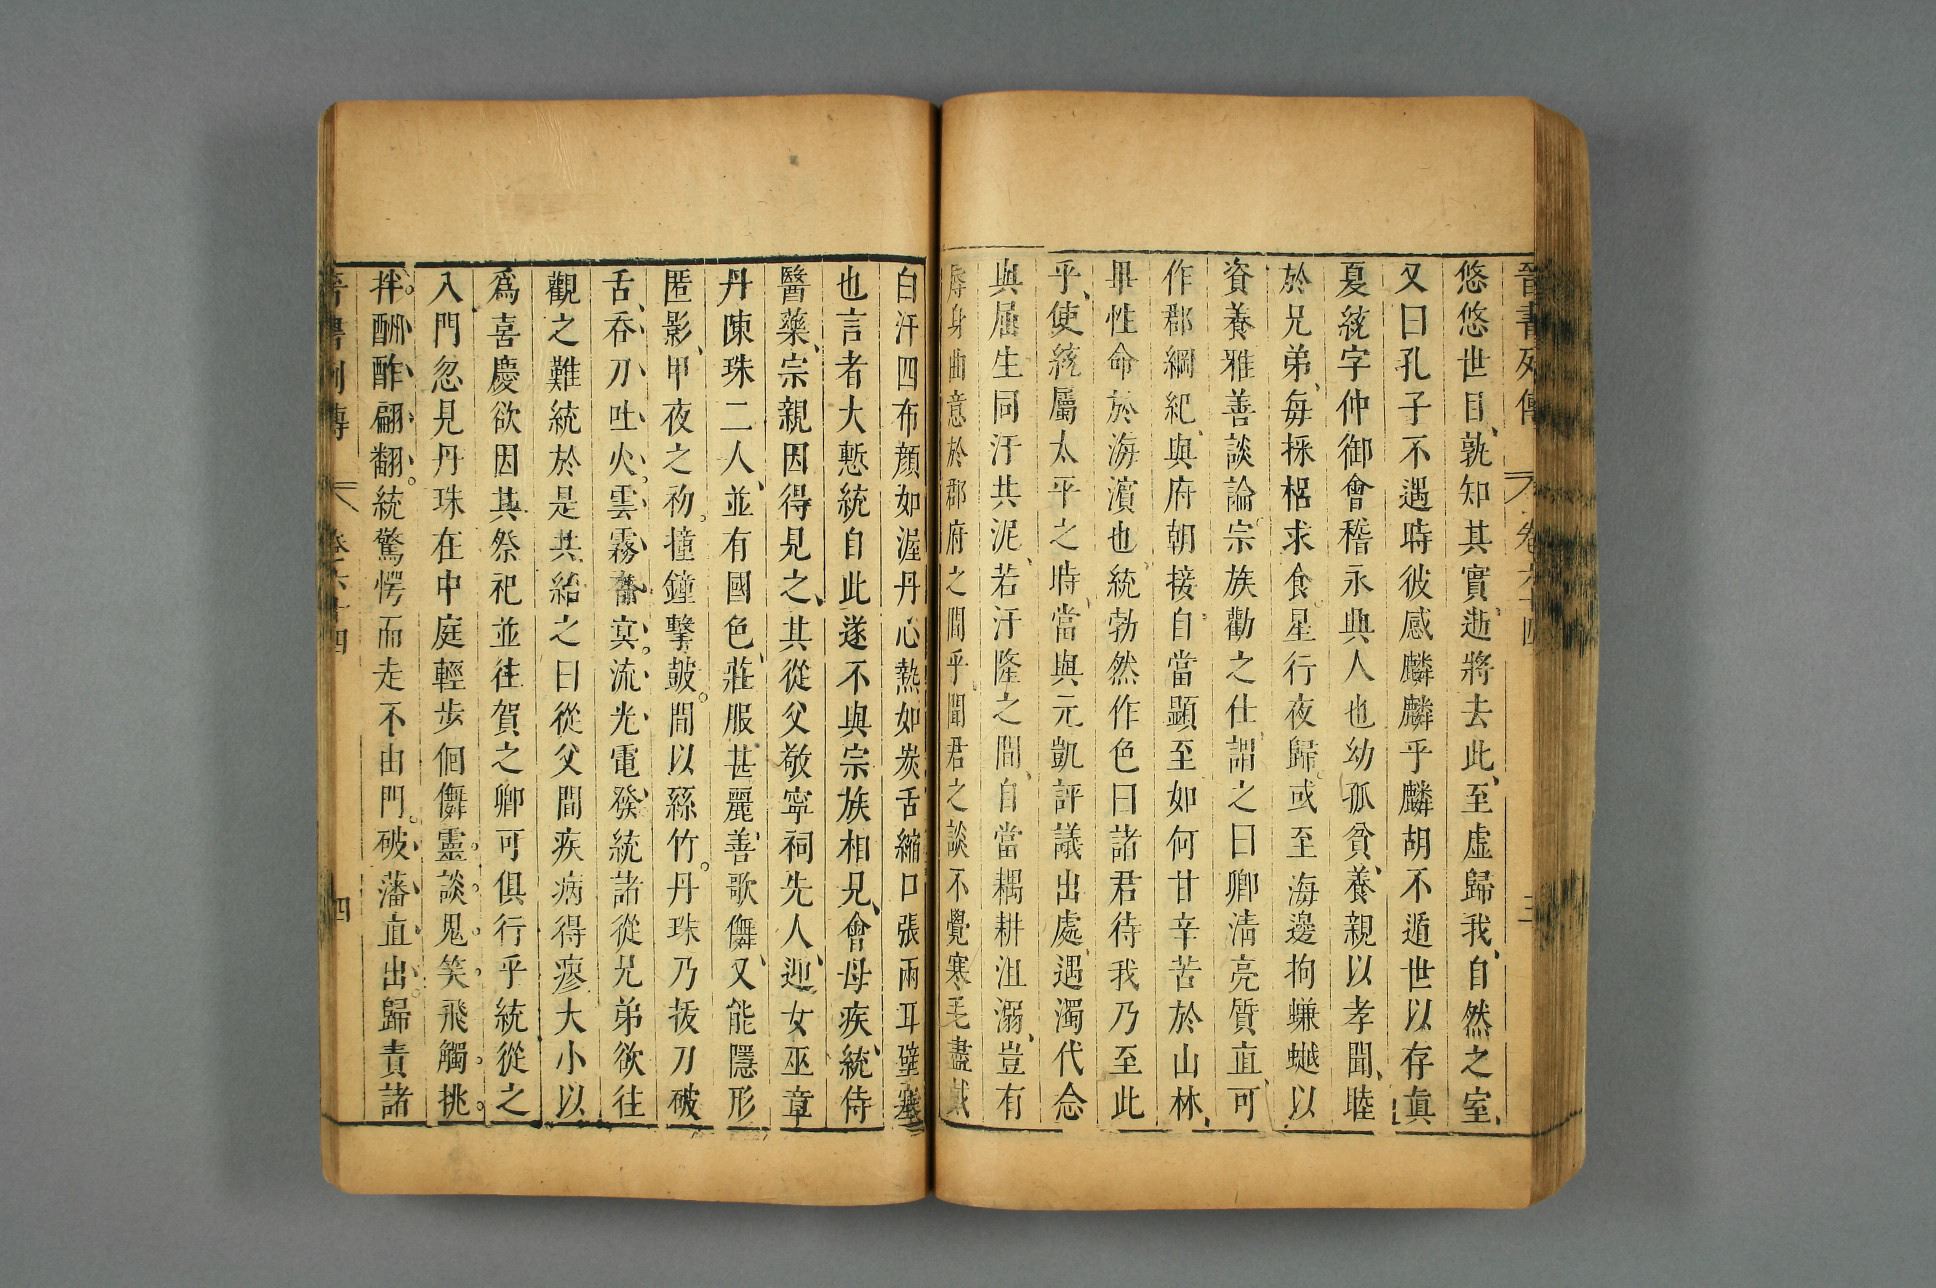 晉書列傳 卷六十四 三
悠悠世目、孰知其實、逝將去此、至虛歸我、自然之室、
又曰孔子不遇時彼感麟麟乎麟胡不遁世以存眞
夏統字仲御會稽永興人也幼孤貧、養親以孝聞、睦
於兄弟、每採梠求食、星行夜歸、或至海邊拘螊𧑅以
資養雅善談論、宗族勸之仕謂之曰卿淸亮質直、可
作郡綱紀、與府朝接、自當顯至如何甘辛苦於山林、
畢性命於海濱也、統勃然作色曰諸君待我乃至此
乎、使統屬太平之時、當與元凱評議出處、遇濁代念
與屈生同汙共泥、若汙隆之間、自當耦耕沮溺、豈有
辱身曲意於郡府之間乎、聞君之談不覺寒毛盡戴
白汗四布顔如渥丹心熱如炭舌縮口張兩耳壁塞
也言者大慙統自此遂不與宗族相見、會母疾、統侍
醫藥、宗親因得見之、其從父敬寧祠先人、迎女巫章
丹陳珠二人、並有國色、莊服甚麗、善歌儛、又能隱形
匿影、甲夜之初。撞鐘擊鼓。間以絲竹。丹珠乃拔刀破
舌、吞刀吐火。雲霧杳冥。流光電發、統諸從兄弟欲往
觀之難統於是共紿之曰從父間疾病得瘳大小以
爲喜慶欲因其祭祀並往賀之卿可俱行乎統從之
入門忽見丹珠在中庭輕步佪儛靈談鬼笑飛觸挑
拌。酬酢翩翻。統驚愕而走不由門。破藩直出。歸責諸
晉書列傳 卷六十四 四